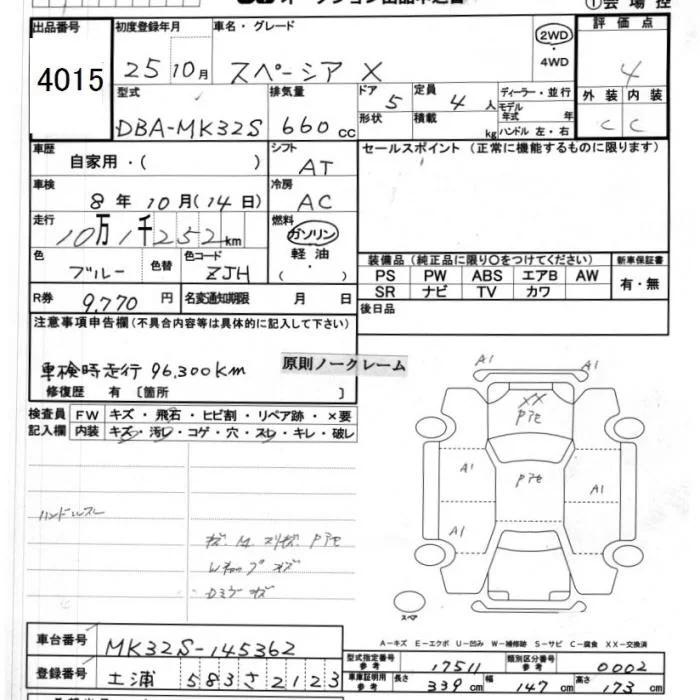 オークション出品申込書
① 会 場 控
出品番号
初度登録年月
車名・グレード
評 価 点
4015
25 10月
スペーシア X
2WD
・
4WD
4
型式
排気量
ドア
5
定員
4 人
ディーラー・並行
モデル年式 年
ハンドル 左・右
外 装
内 装
DBA-MK32S
660 cc
形状
積載
kg
C
C
車歴
自家用・( )
シフト
AT
セールスポイント (正常に機能するものに限ります)
車検
8 年 10 月 ( 14 日)
冷房
AC
走行
10万1千252km
燃料
ガソリン
軽 油
( )
色
ブルー
色替
色コード
ZJH
装備品 (純正品に限り○をつけてください)
新車保証書
PS PW ABS エアB AW
SR ナビ TV カワ
有・無
R券
9,770 円
名変通知期限 月 日
後日品
注意事項申告欄 (不具合内容等は具体的に記入して下さい)
車検時走行 96,300km
原則ノークレーム
修復歴 有 〔箇所 〕
検査員
記入欄
FW キズ・飛石・ヒビ割・リペア跡・×要
内装 キズ・汚レ・コゲ・穴・スレ・キレ・破レ
ハンドルスレ
A1
A1
XX
Pアセ
A1
Pアセ
A1
A1
スペア
A-キズ E-エクボ U-凹み W-補修跡 S-サビ C-腐食 XX-交換済
車台番号
MK32S-145362
型式指定番号
参考
17511
類別区分番号
参考
0002
登録番号
土浦 583 さ 2123
車庫証明用
参考
長さ
339 cm
幅
147 cm
高さ
173 cm